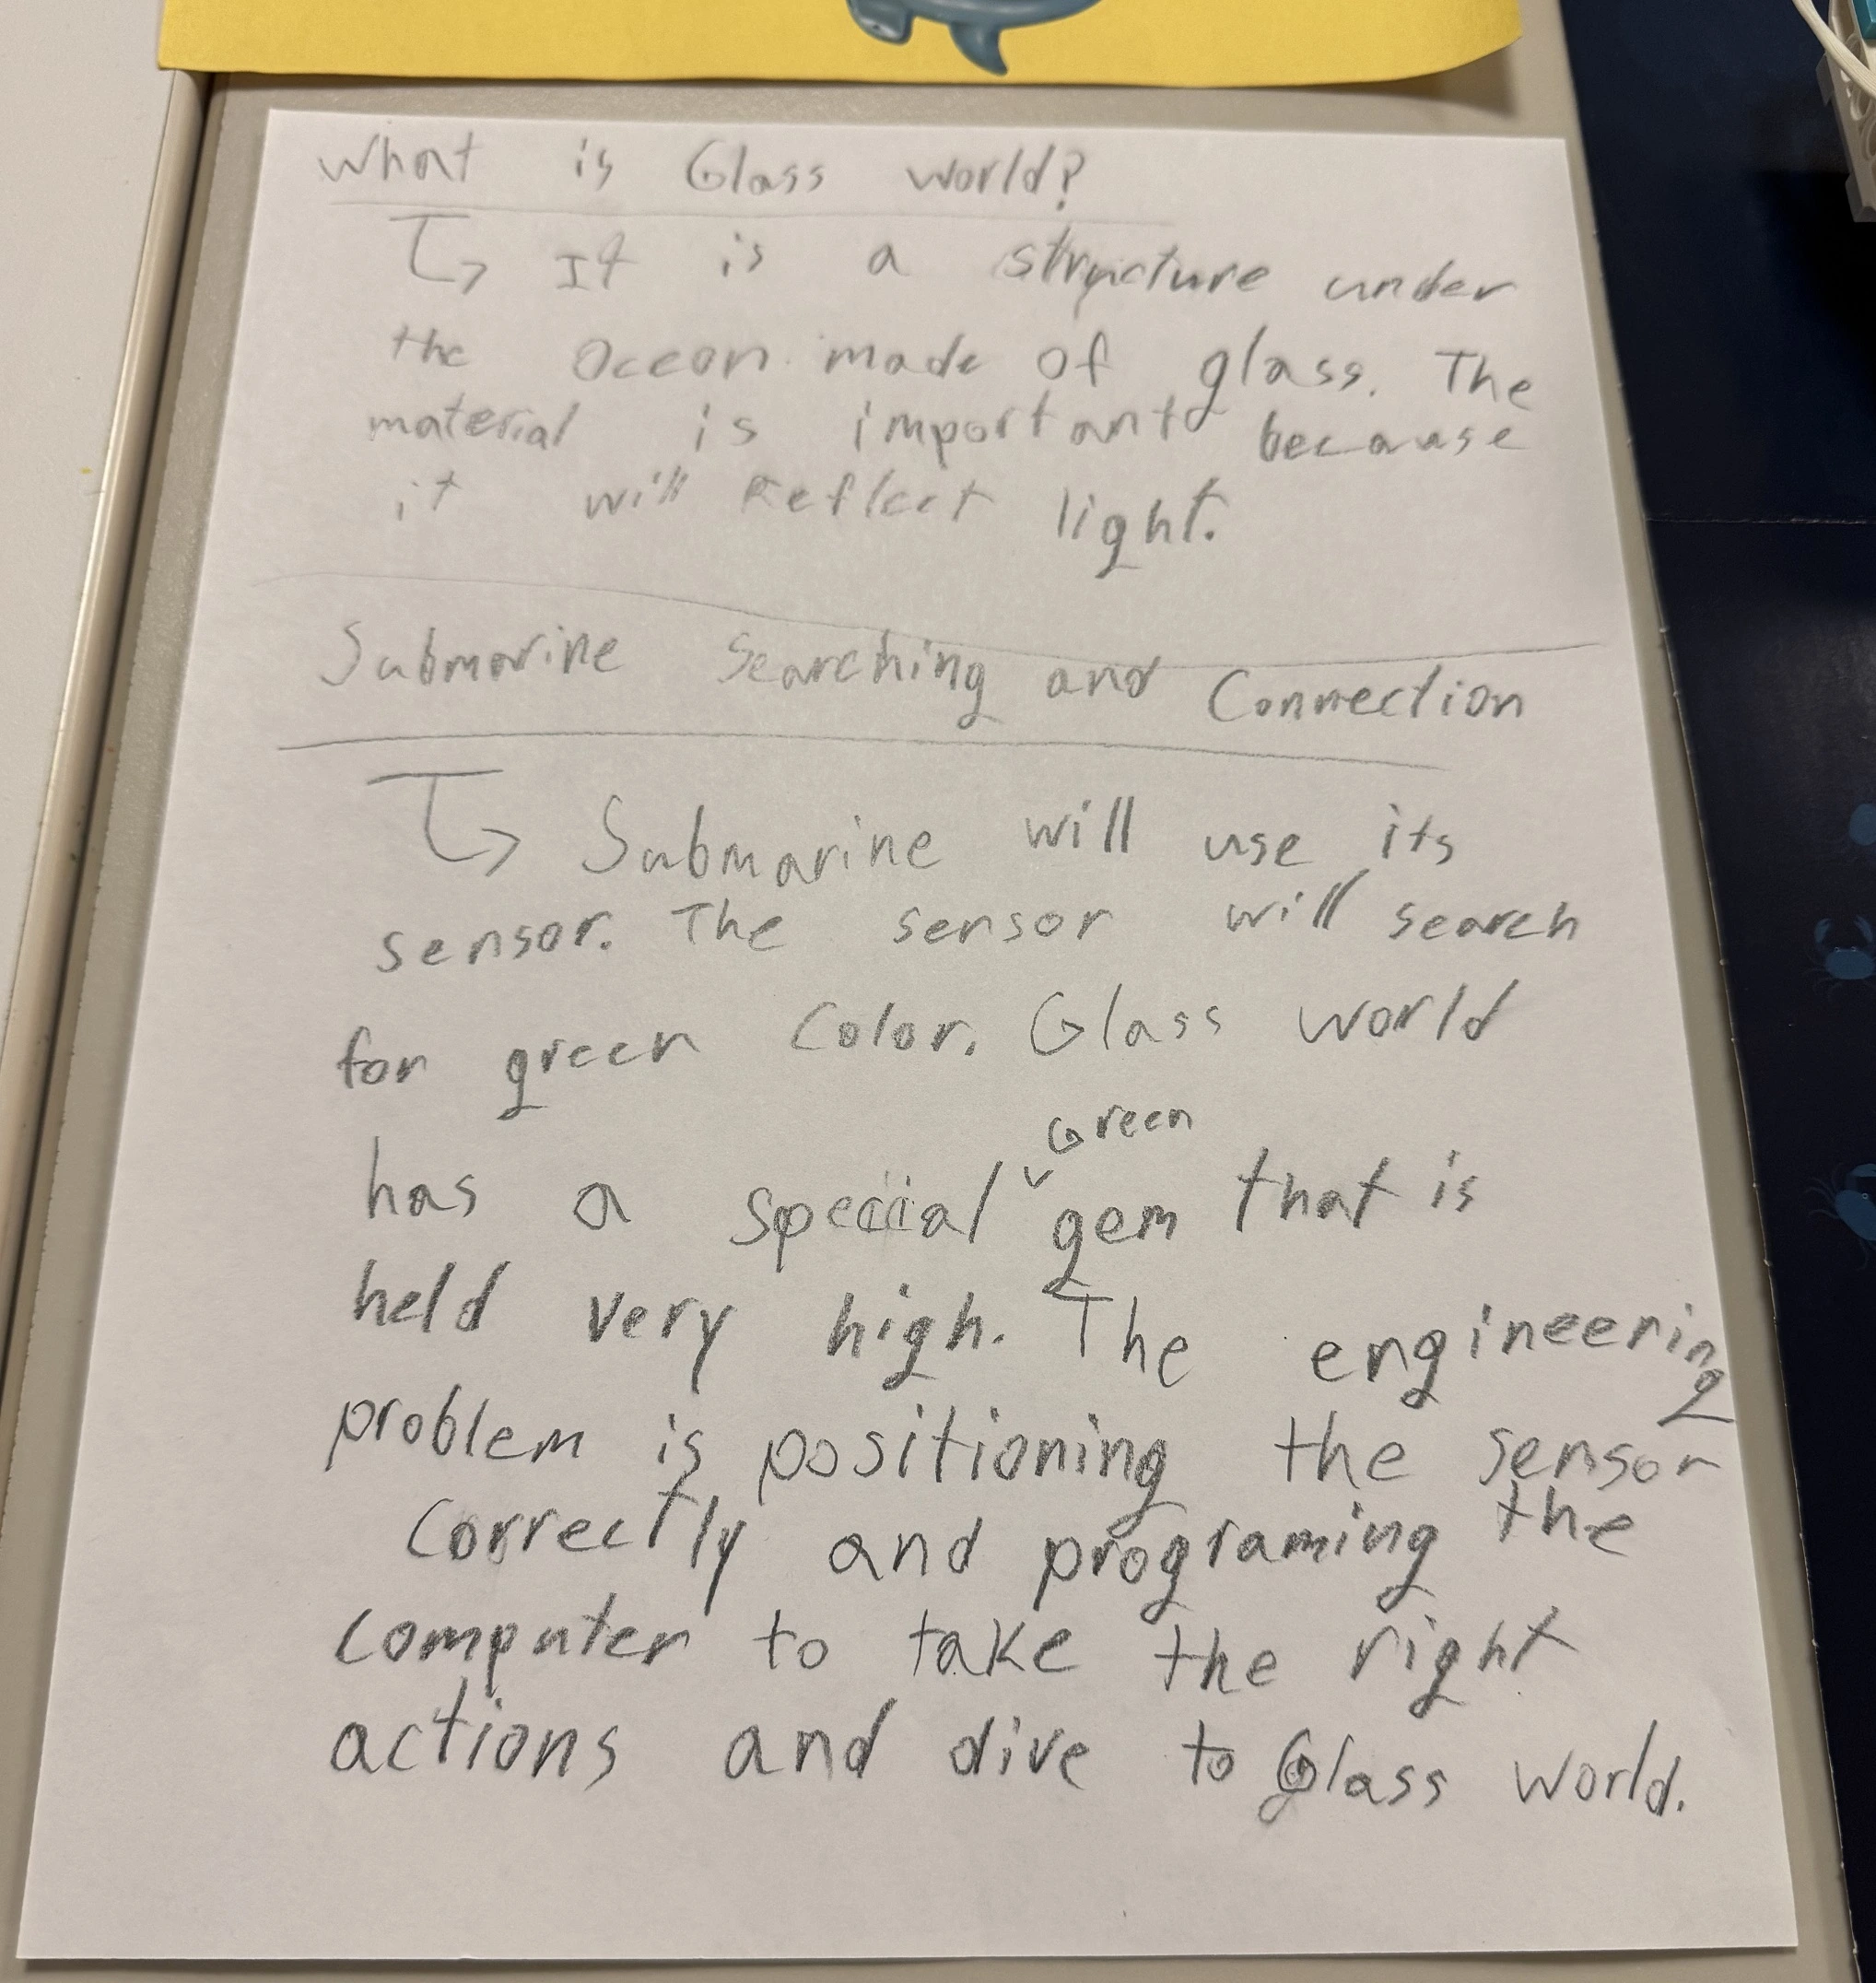 What is Glass world?
It is a structure under
the Ocean made of glass. The
material is important because
it will Reflect light.
Submarine Searching and Connection
Submarine will use its
sensor. The sensor will search
for green color. Glass world
has a special Green gem that is
held very high. The engineering
problem is positioning the sensor
correctly and programing the
computer to take the right
actions and dive to Glass world.